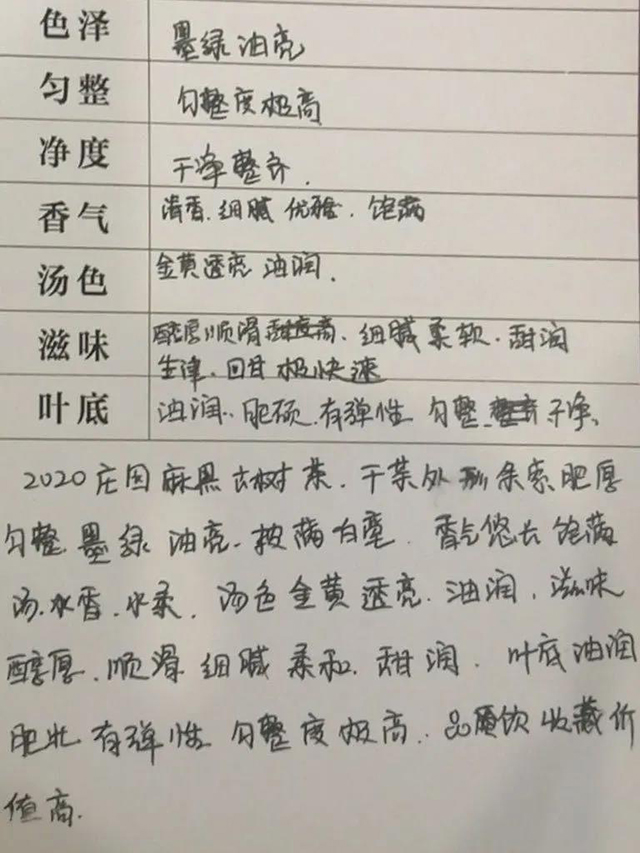 色泽 墨绿油亮
匀整 匀整度极高
净度 干净整齐.
香气 清香.细腻 优雅.饱满
汤色 金黄透亮 油润.
滋味 醇厚顺滑甜度高.细腻柔软.甜润
生津.回甘极快速
叶底 油润.肥硕.有弹性 匀整 干净.
2020庄园麻黑古树茶.干茶外形条索肥厚
匀整 墨绿 油亮.披满白毫.香气悠长 饱满
汤水香.水柔.汤色金黄透亮.油润.滋味
醇厚.顺滑 细腻 柔和.甜润.叶底油润
肥壮 有弹性 匀整度极高.品质饮收藏价
值高.